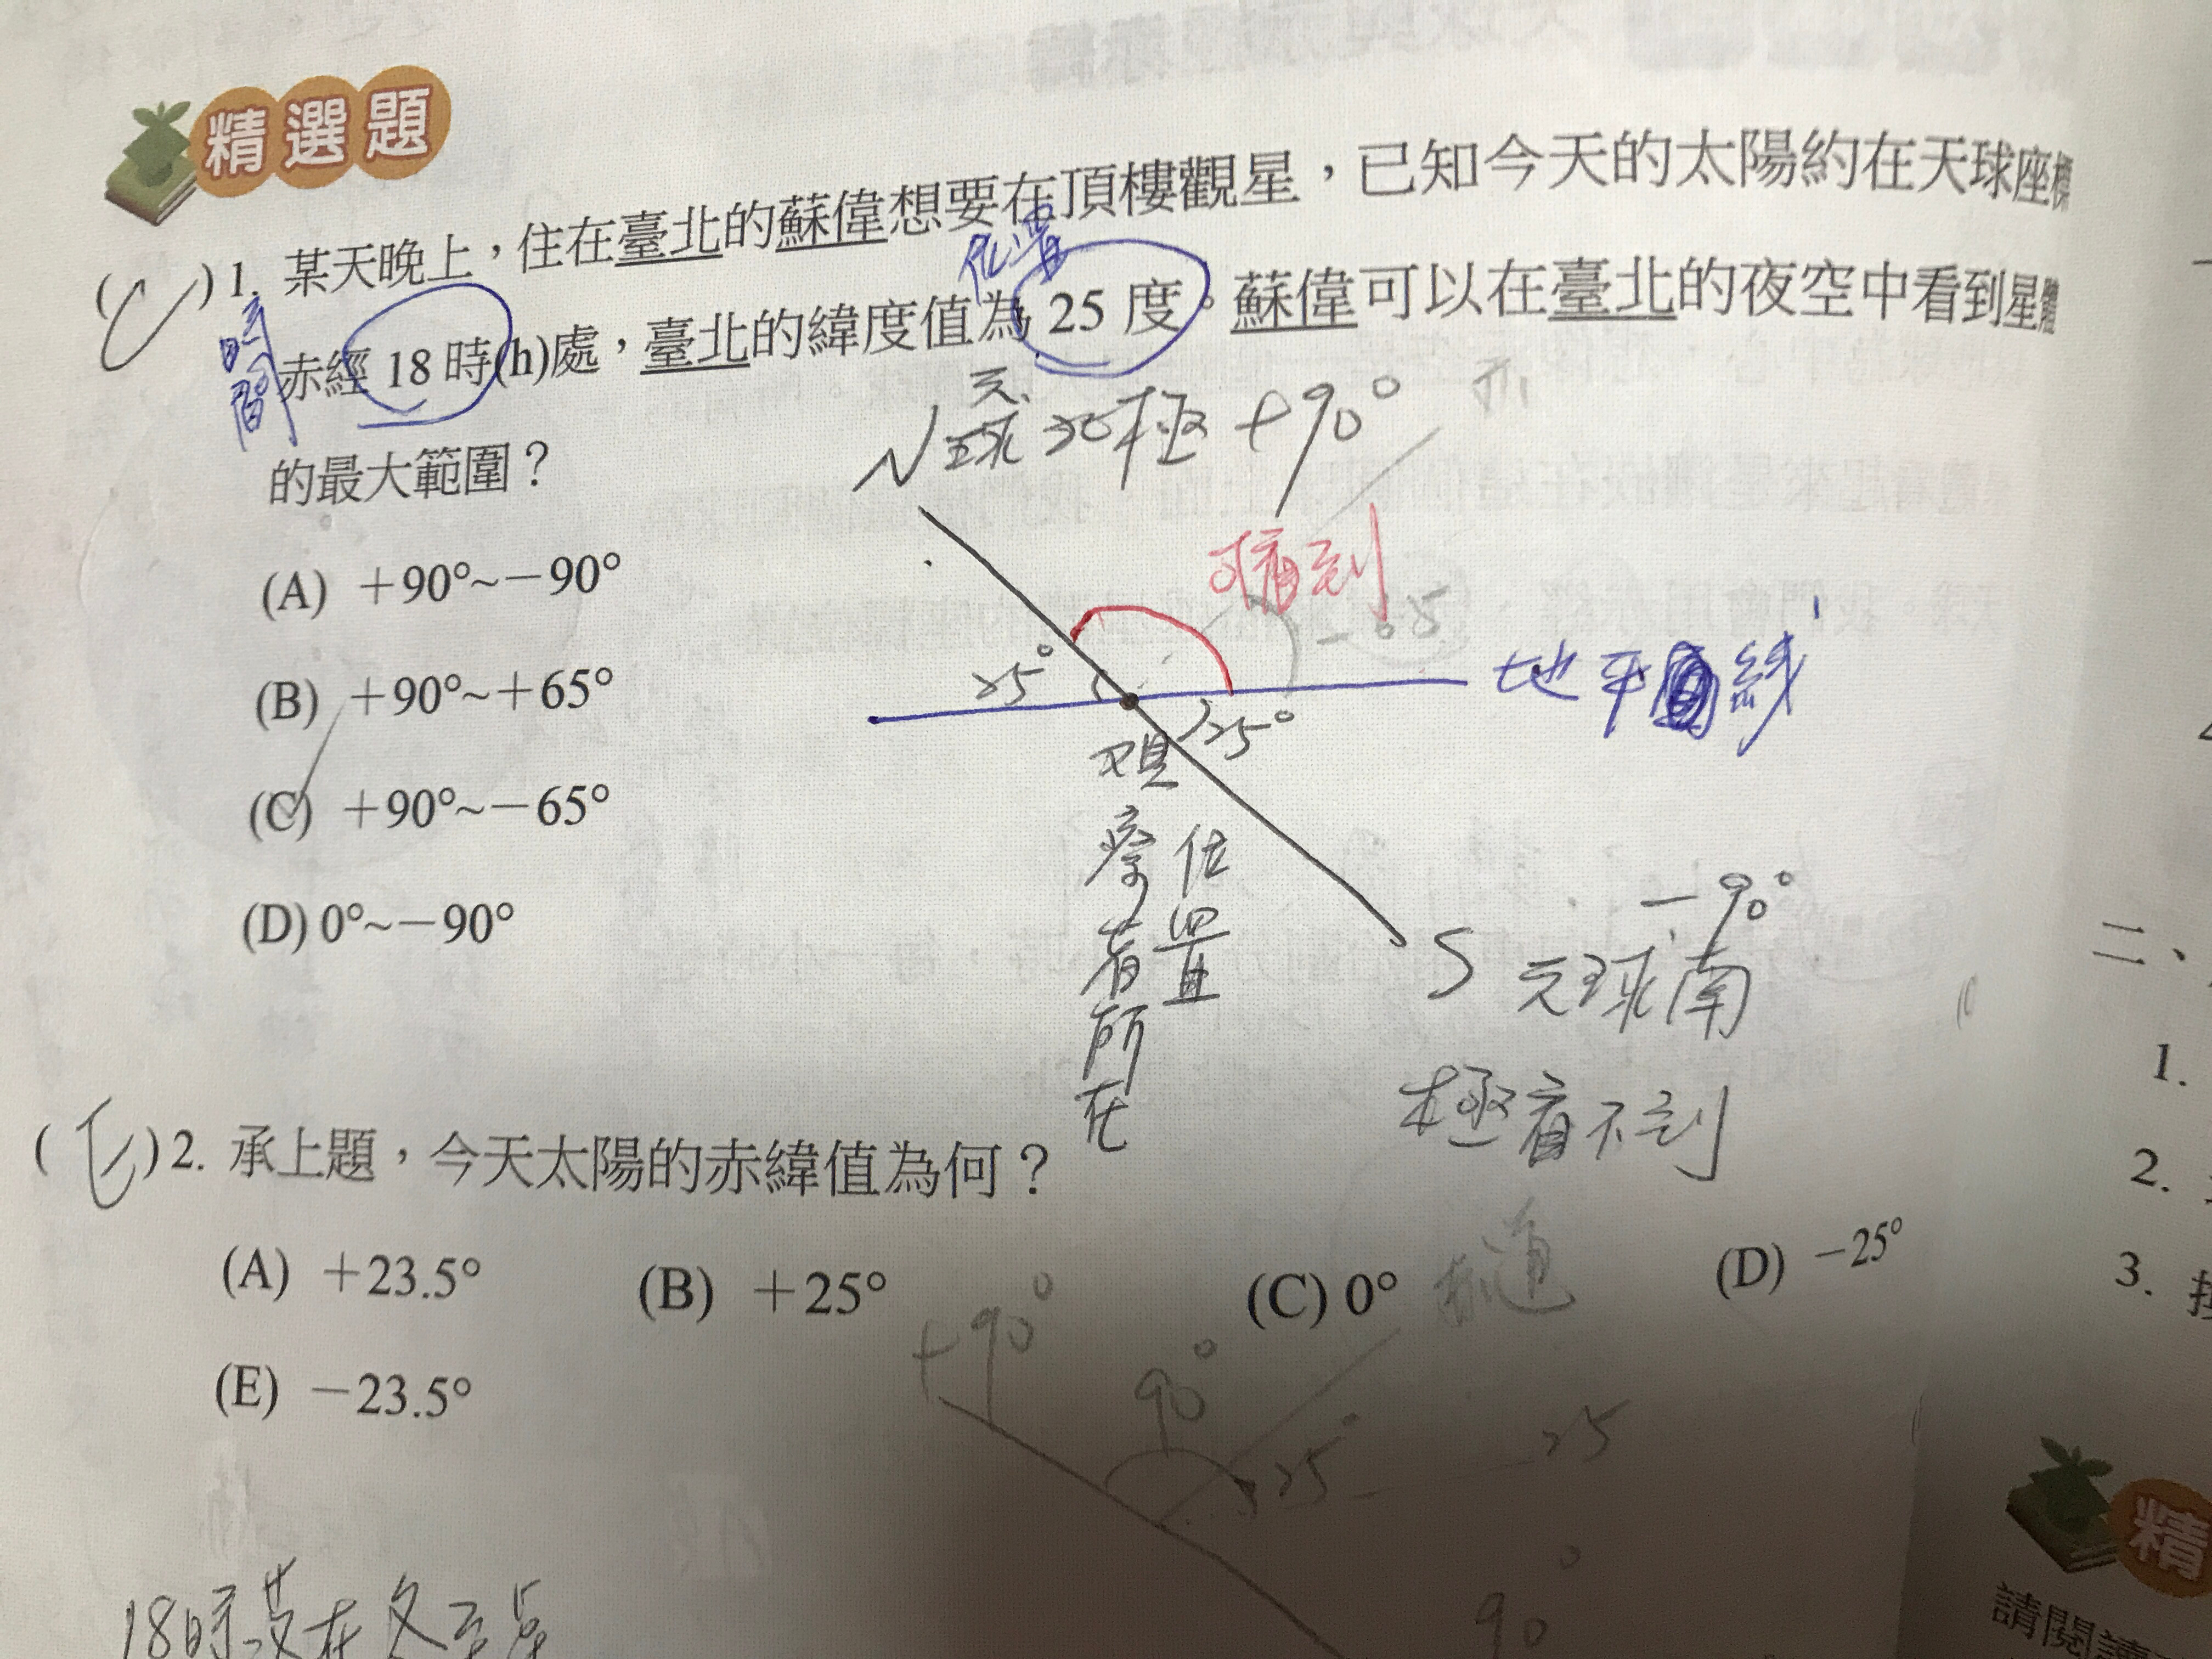 精選題
(C) 1. 某天晚上，住在臺北的蘇偉想要在頂樓觀星，已知今天的太陽約在天球座標
時間
位置
赤經 18 時(h)處，臺北的緯度值為 25 度。蘇偉可以在臺北的夜空中看到星體
的最大範圍？
N 天球北極 +90°
看到
(A) +90°~－90°
25°
地平線
(B) +90°~+65°
25°
觀察者所在位置
(C) +90°~－65°
(D) 0°~－90°
－90°
S 天球南
極看不到
(E) 2. 承上題，今天太陽的赤緯值為何？
(A) +23.5°
(B) +25°
(C) 0°
赤道
(D) －25°
(E) －23.5°
+90°
90°
25°
25
90°
18時
在冬至點
二、
1.
2.
3.
精
請閱讀